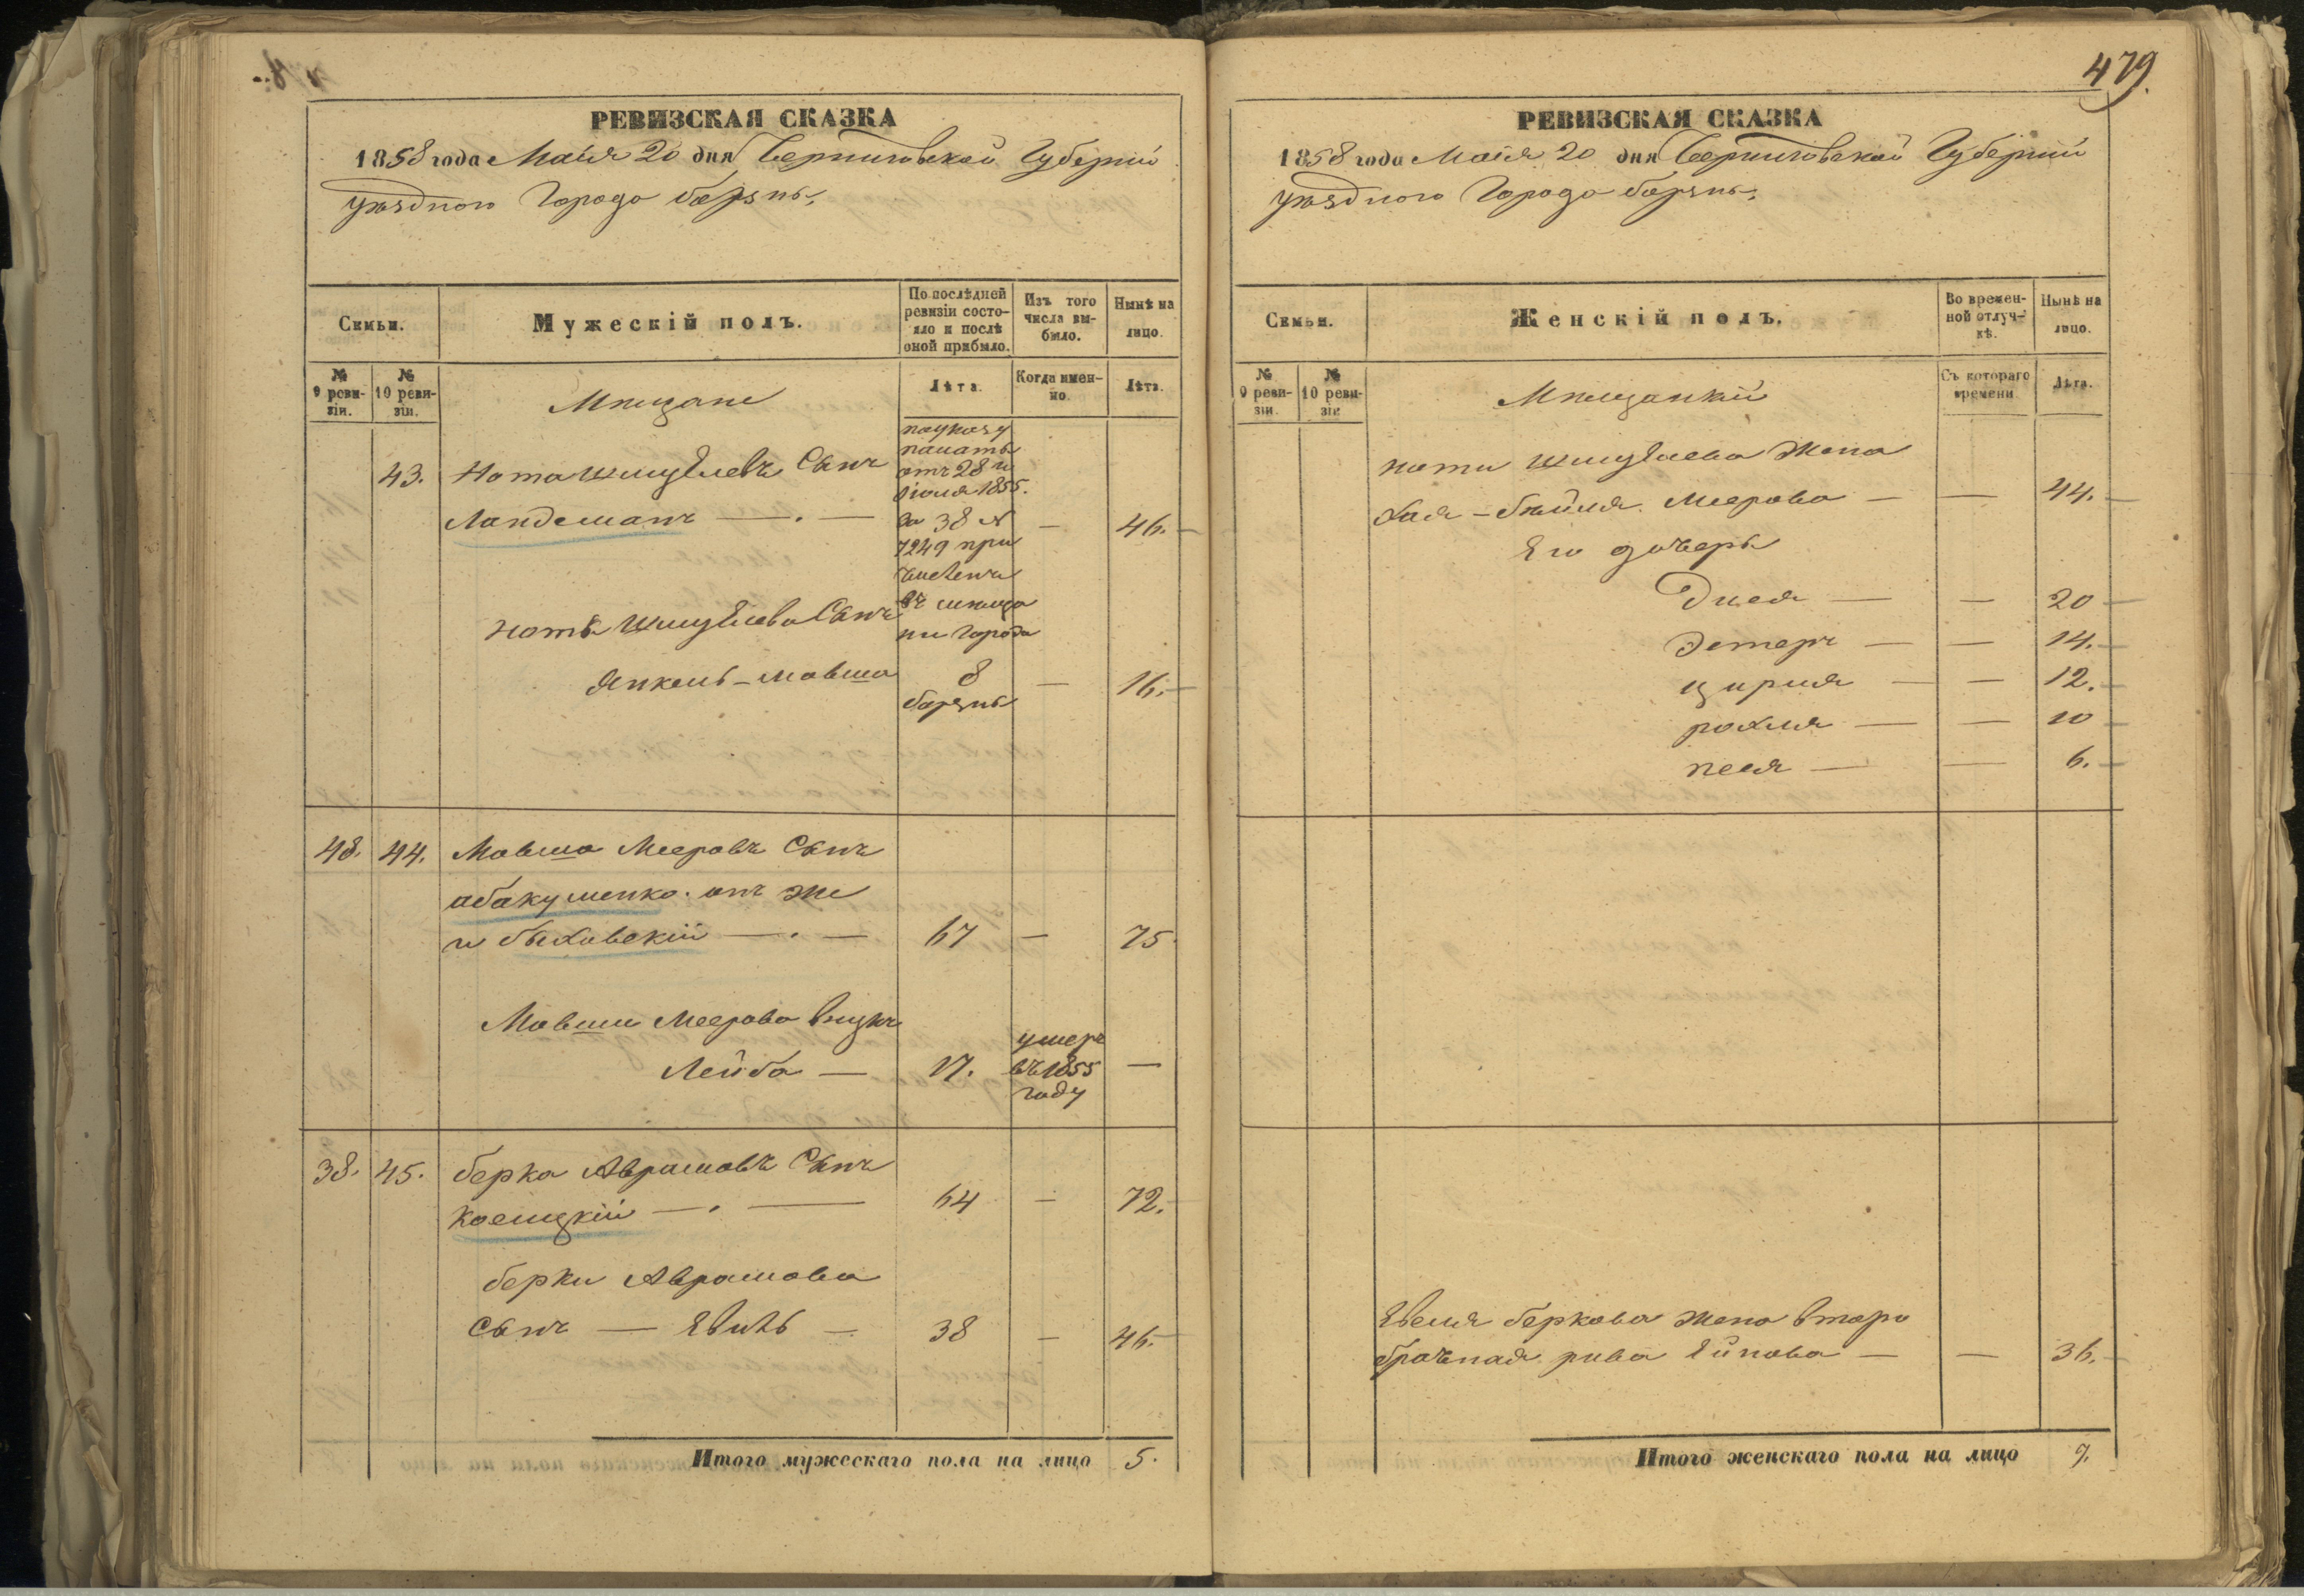 479.
РЕВИЗСКАЯ СКАЗКА
1858 года Маія 20 дня Черниговской Губерніи
уѣзднаго Города борзны,
Семьи.
Мужескій полъ.
По послѣдней ревизіи состояло и послѣ оной прибыло.
Изъ того числа выбыло.
Нынѣ на лицо.
№ 9 ревизіи.
№ 10 ревизіи.
Мѣщане
Лѣта.
Когда именно.
Лѣта.
43. Нота Шмуелевъ Сынъ
Ландеманъ — . — — 46.
по указу
палаты
отъ 28 и
Іюля 1855.
за № 38
7249 при
численъ
въ мѣща
не города
борзны
Ноты Шмуелева Сынъ
Янкель-Мовша 8 — 16.
48. 44. Мовша Мееровъ Сынъ
абакуменко онъ же
и быховскій — . — 67 — 75
Мовши Меерова внукъ
Лейба — 17. умеръ въ 1855 году —
38. 45. берка Аврамовъ Сынъ
Косицкій — . — 64 — 72.
берки Аврамова
Сынъ — 38 — 46.
Итого мужескаго пола на лицо 5.
РЕВИЗСКАЯ СКАЗКА
1858 года Маія 20 дня Черниговской Губерніи
уѣзднаго Города борзны,
Семьи.
Женскій полъ.
Во временной отлучкѣ.
Нынѣ на лицо.
№ 9 ревизіи
№ 10 ревизіи
Мѣщанкіи
Съ котораго времени
Лѣта.
Ноты Шмуелева жена
Хая-бейля Меерова — — 44.
Его дочеры
Двея — — 20
Эстеръ — — 14.
цирля — — 12.
рохля — — 10
песя — — 6.
беркова жена второ
брачная рива — — 36.
Итого женскаго пола на лицо 7.